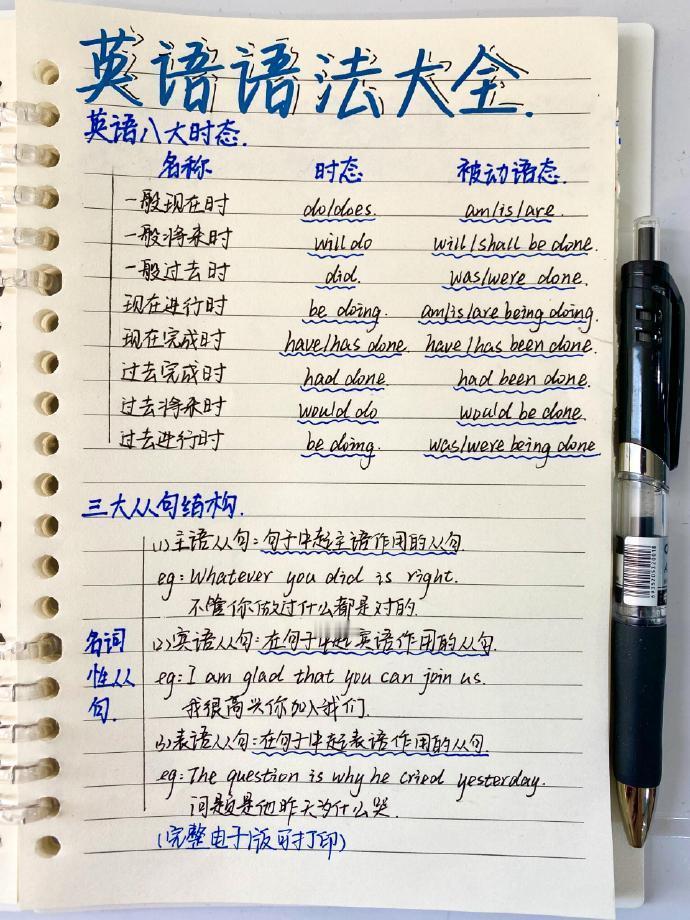 英语语法大全.
英语八大时态.
名称 时态 被动语态.
一般现在时 do/does. am/is/are.
一般将来时 will do will/shall be done.
一般过去时 did. was/were done.
现在进行时 be doing. am/is/are being doing.
现在完成时 have/has done. have/has been done.
过去完成时 had done. had been done.
过去将来时 would do would be done.
过去进行时 be doing. was/were being done
三大从句结构.
(1)主语从句:句子中起主语作用的从句.
eg:Whatever you did is right.
不管你做过什么都是对的.
名词性从句.
(2)宾语从句:在句子中起宾语作用的从句.
eg:I am glad that you can join us.
我很高兴你加入我们.
(3)表语从句:在句子中起表语作用的从句.
eg:The question is why he cried yesterday.
问题是他昨天为什么哭.
(完整电子版可打印)